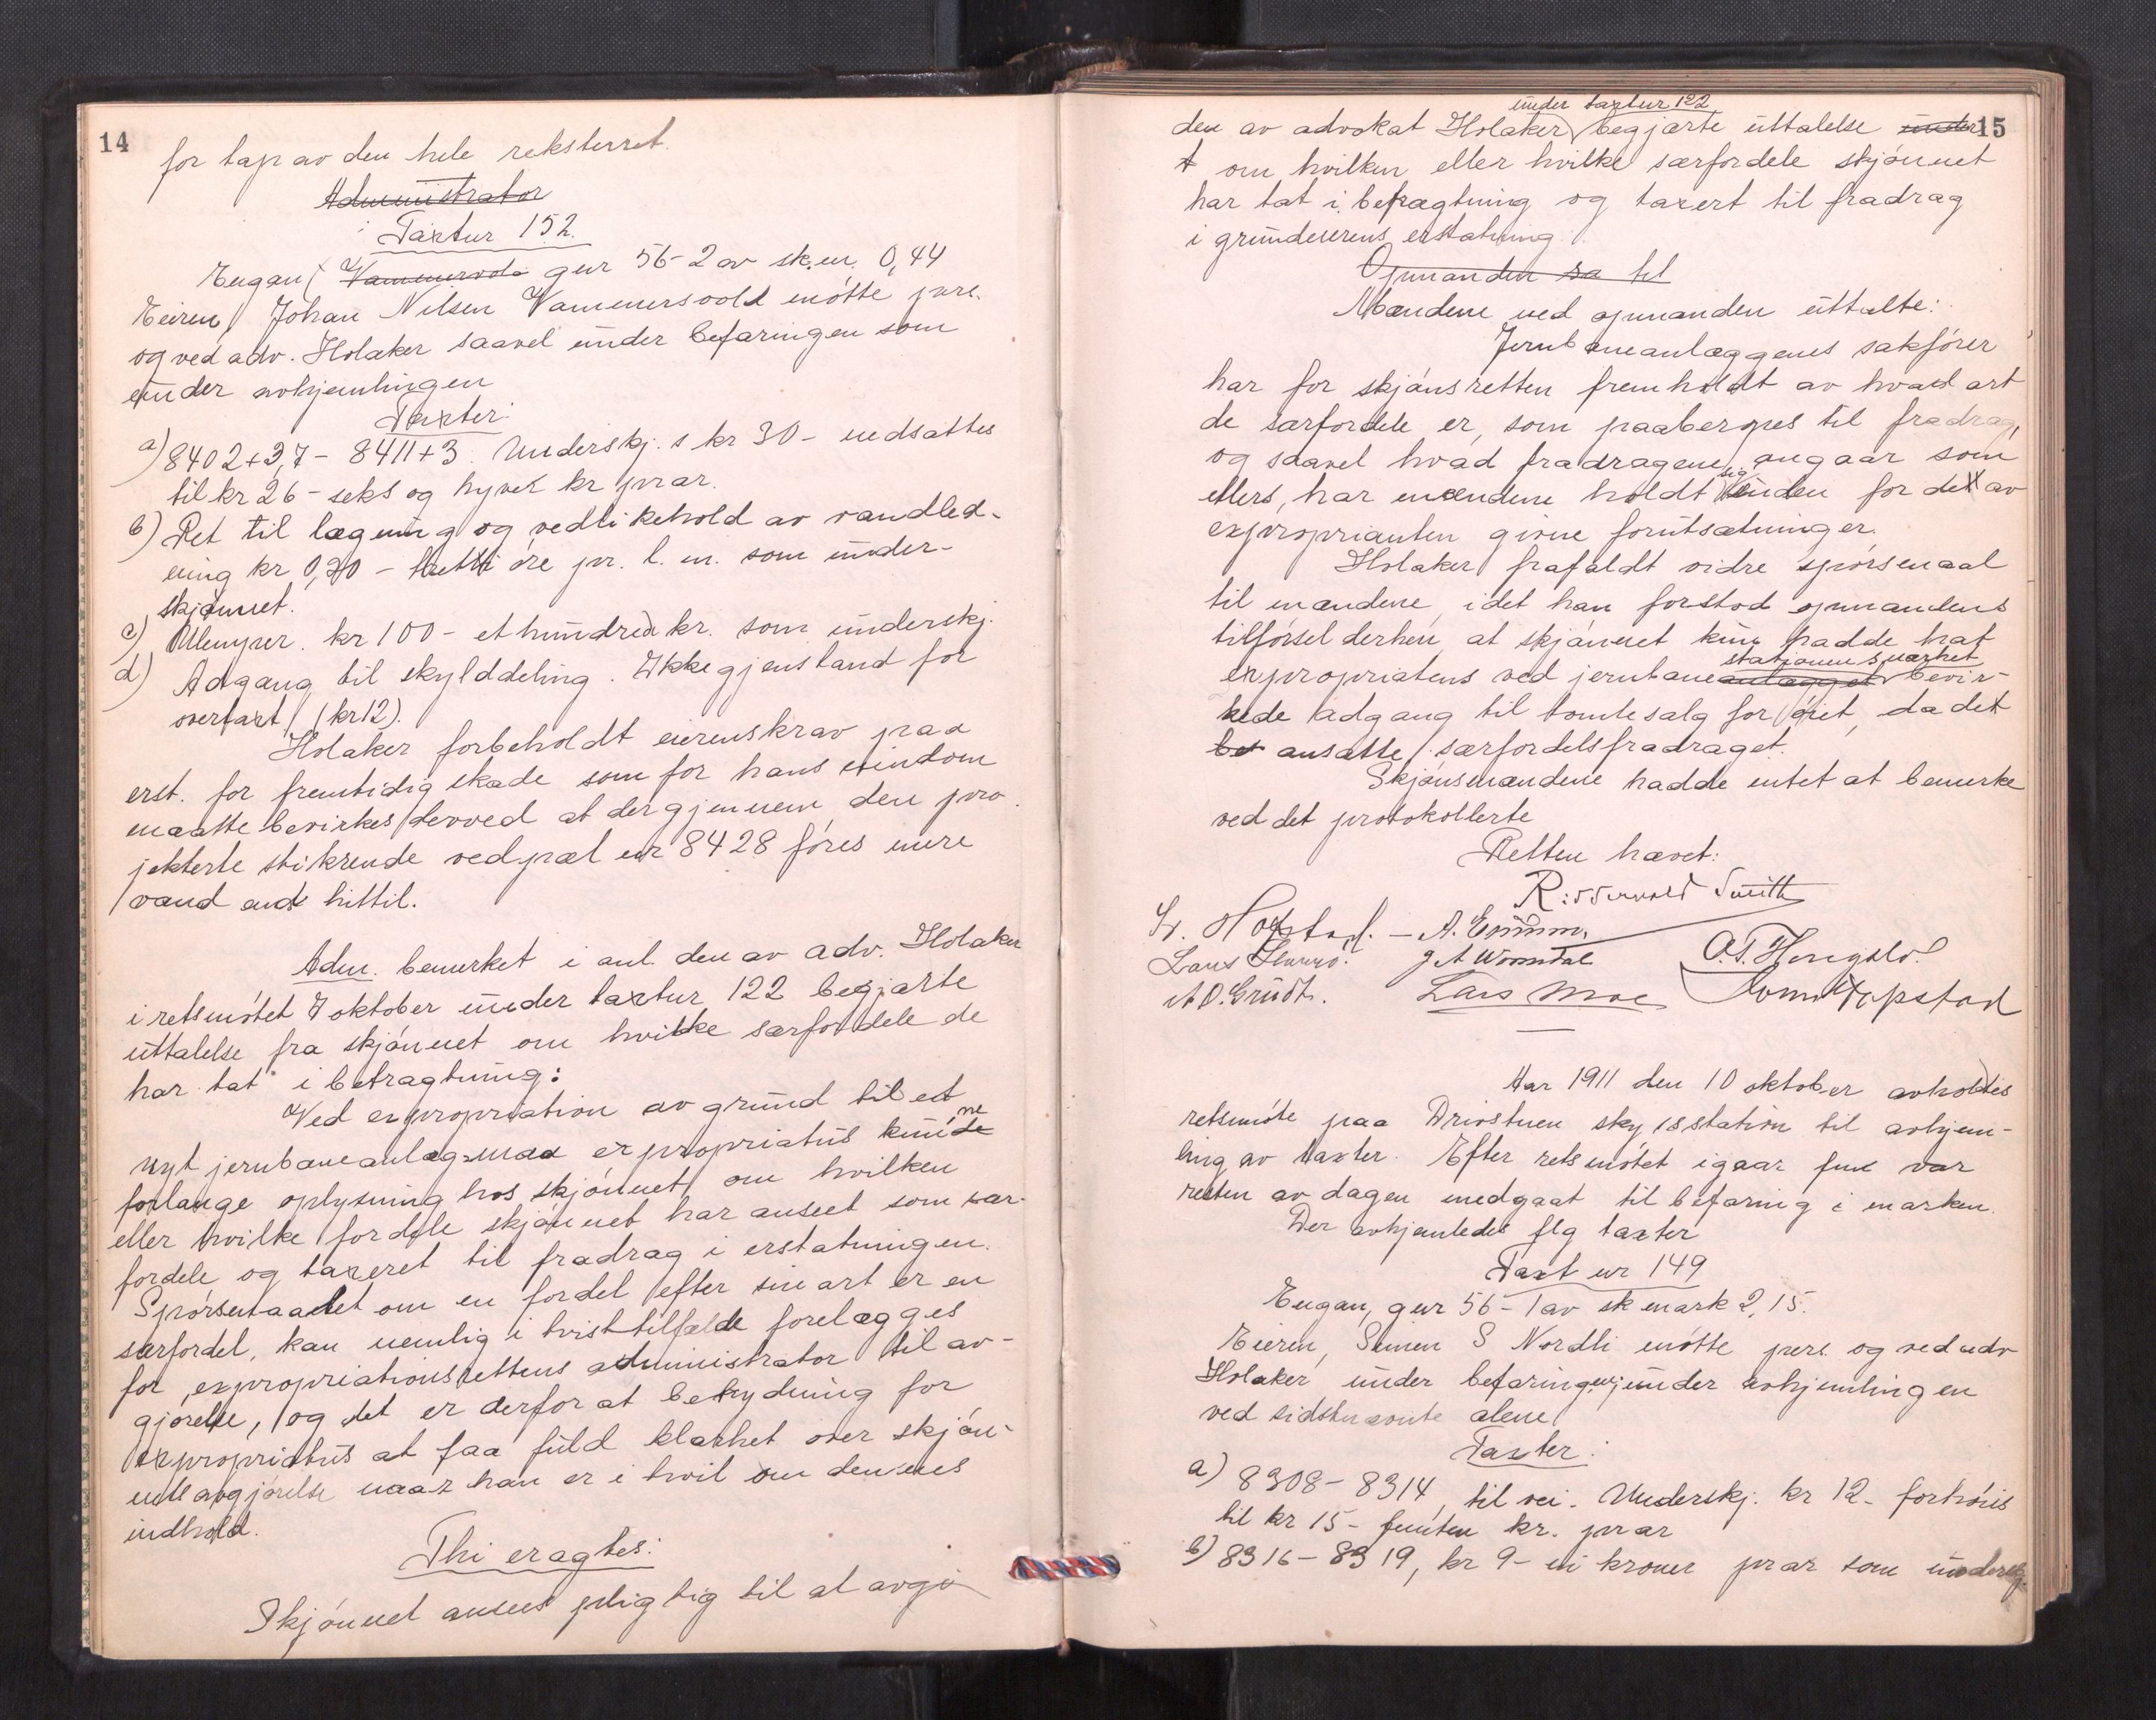 14
for tap av den hele reksterret.
Administrator
Taxtnr 152.
Engan, Vammervold gnr 56-2 av sk.m. 0,44
Eieren, Johan Nilsen Vammersvold mötte pers.
og ved adv. Holaker saavel under befaringen som
under avhjemlingen
Taxter:
a) 8402+3,7 - 8411+3. Underskj.s kr 30- nedsattes
til kr 26 - seks og tyve kr pr ar.
b) Ret til lægning og vedlikehold av vandled-
ning kr 0,30 - tretti öre pr. l. m. som under-
skjønnet.
c) Ulemper. kr 100 - et hundred kr. som underskj.
d) Adgang til skylddeling. Ikke gjenstand for
overtaxt (kr 12).
Holaker forbeholdt eierens krav paa
erst. for fremtidig skade som for hans eiendom
maatte bevirkes derved at der gjennem den pro-
jekterte stikrende ved pæl nr 8428 föres mere
vand end hittil.
Adm. bemerket i anl. den av adv. Holaker
i retsmötet 7 oktober under taxtnr 122 begjærte
uttalelse fra skjönnet om hvilke særfordele de
har tat i betragtning:
Ved expropriation av grund til et
nyt jernbaneanlæg maa expropriatus kunde ne
forlange oplysning hos skjönnet om hvilken
eller hvilke fordele skjönnet har anseet som sær-
fordele og taxeret til fradrag i erstatningen.
Spörsmaalet om en fordel efter sin art er en
særfordel, kan nemlig i tvisttilfælde forelægges
for expropriationsrettens administrator til av-
gjörelse, og det er derfor at betydning for
expropriatus at faa fuld klarhet over skjön-
nets avgjörelse naar han er i tvil om dennes
indhold.
Thi eragtes:
Skjönnet ansees pligtig til at avgi
15
under taxtnr 122
den av advokat Holaker begjærte uttalelse under
t om hvilken eller hvilke særfordele skjönnet
har tat i betragtning og taxert til fradrag
i grundeierens erstatning.
Opmanden sa til
Mændene ved opmanden uttalte:
Jernbaneanlæggenes sakförer
har for skjönsretten fremholdt av hvad art
de særfordele er, som paaberopes til fradrag,
og saavel hvad fradragene angaar som
ellers, har mændene holdt sig inden for det av
exproprianten givne forutsætninger.
Holaker frafaldt vidre spörsmaal
til mændene, idet han forstod opmandens
tilförsel derhen, at skjönnet kun hadde hat
stationens nærhet
expropriatens ved jernbaneanlægget bevir-
kede adgang til tomtesalg for öiet, da det
be ansatte særfordelsfradraget.
Skjönsmændene hadde intet at bemerke
ved det protokollerte
Retten hævet:
R: Svervold Smith
A. Emmm.
Lars Moe
Aar 1911 den 10 oktober avholdtes
retsmöte paa Drivstuen skysstation til avhjem-
ling av taxter. Efter retsmötet igaar var
resten av dagen medgaat til befaring i marken.
Der avhjemledes flg taxter
Taxt nr 149
Engan, gnr 56-1 av sk mark 2,15.
Eieren, Simen S Nordli mötte pers. og ved adv
Holaker under befaringen, under avhjemlingen
ved sidstnævnte alene
Taxter:
a) 8308 - 8314, til vei. Underskj. kr 12- forhöies
til kr 15 - femten kr. pr ar
b) 8316 - 8319, kr 9 - ni kroner pr ar som underskj.